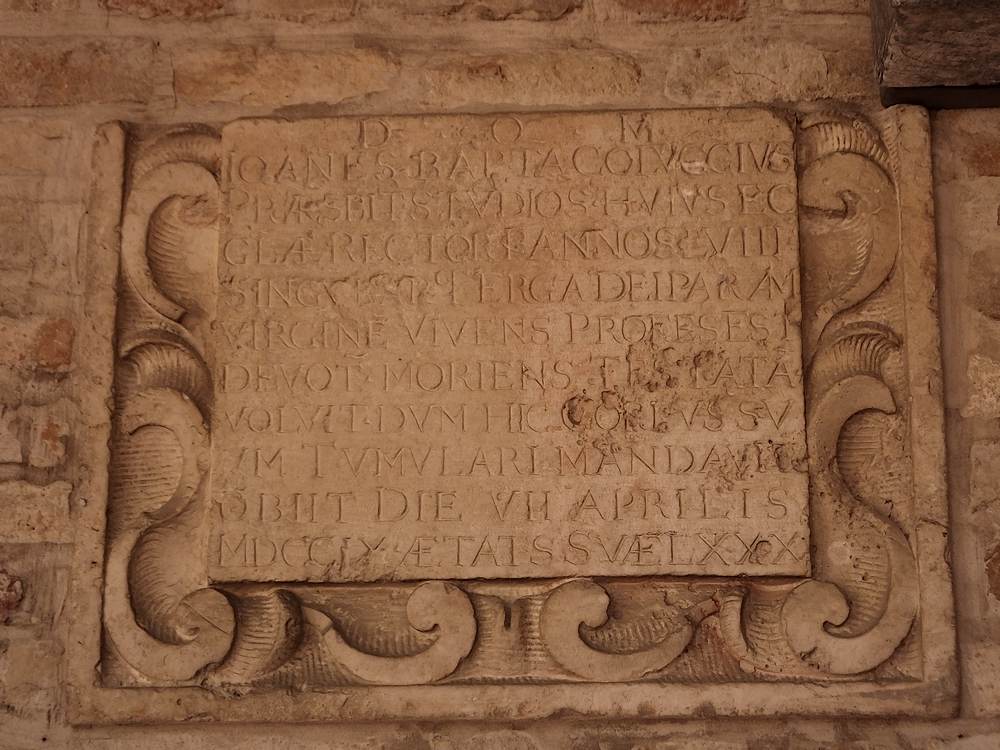 D O M
IOANES BAPTA COLVCCIVS
PRÆSBIT STVDIOS HVIVS EC
CLÆ RECTOR ANNOS LVIIII
ERGA DEIPARAM
VIRGINĒ VIVENS PROFESES EST
DEVOT MORIENS TESTATA
VOLVIT DVM HIC CORPVS SV
VM TVMVLARI MANDAVIT
OBIIT DIE VII APRILIS
MDCCIX ÆTATS SVÆ LXXX